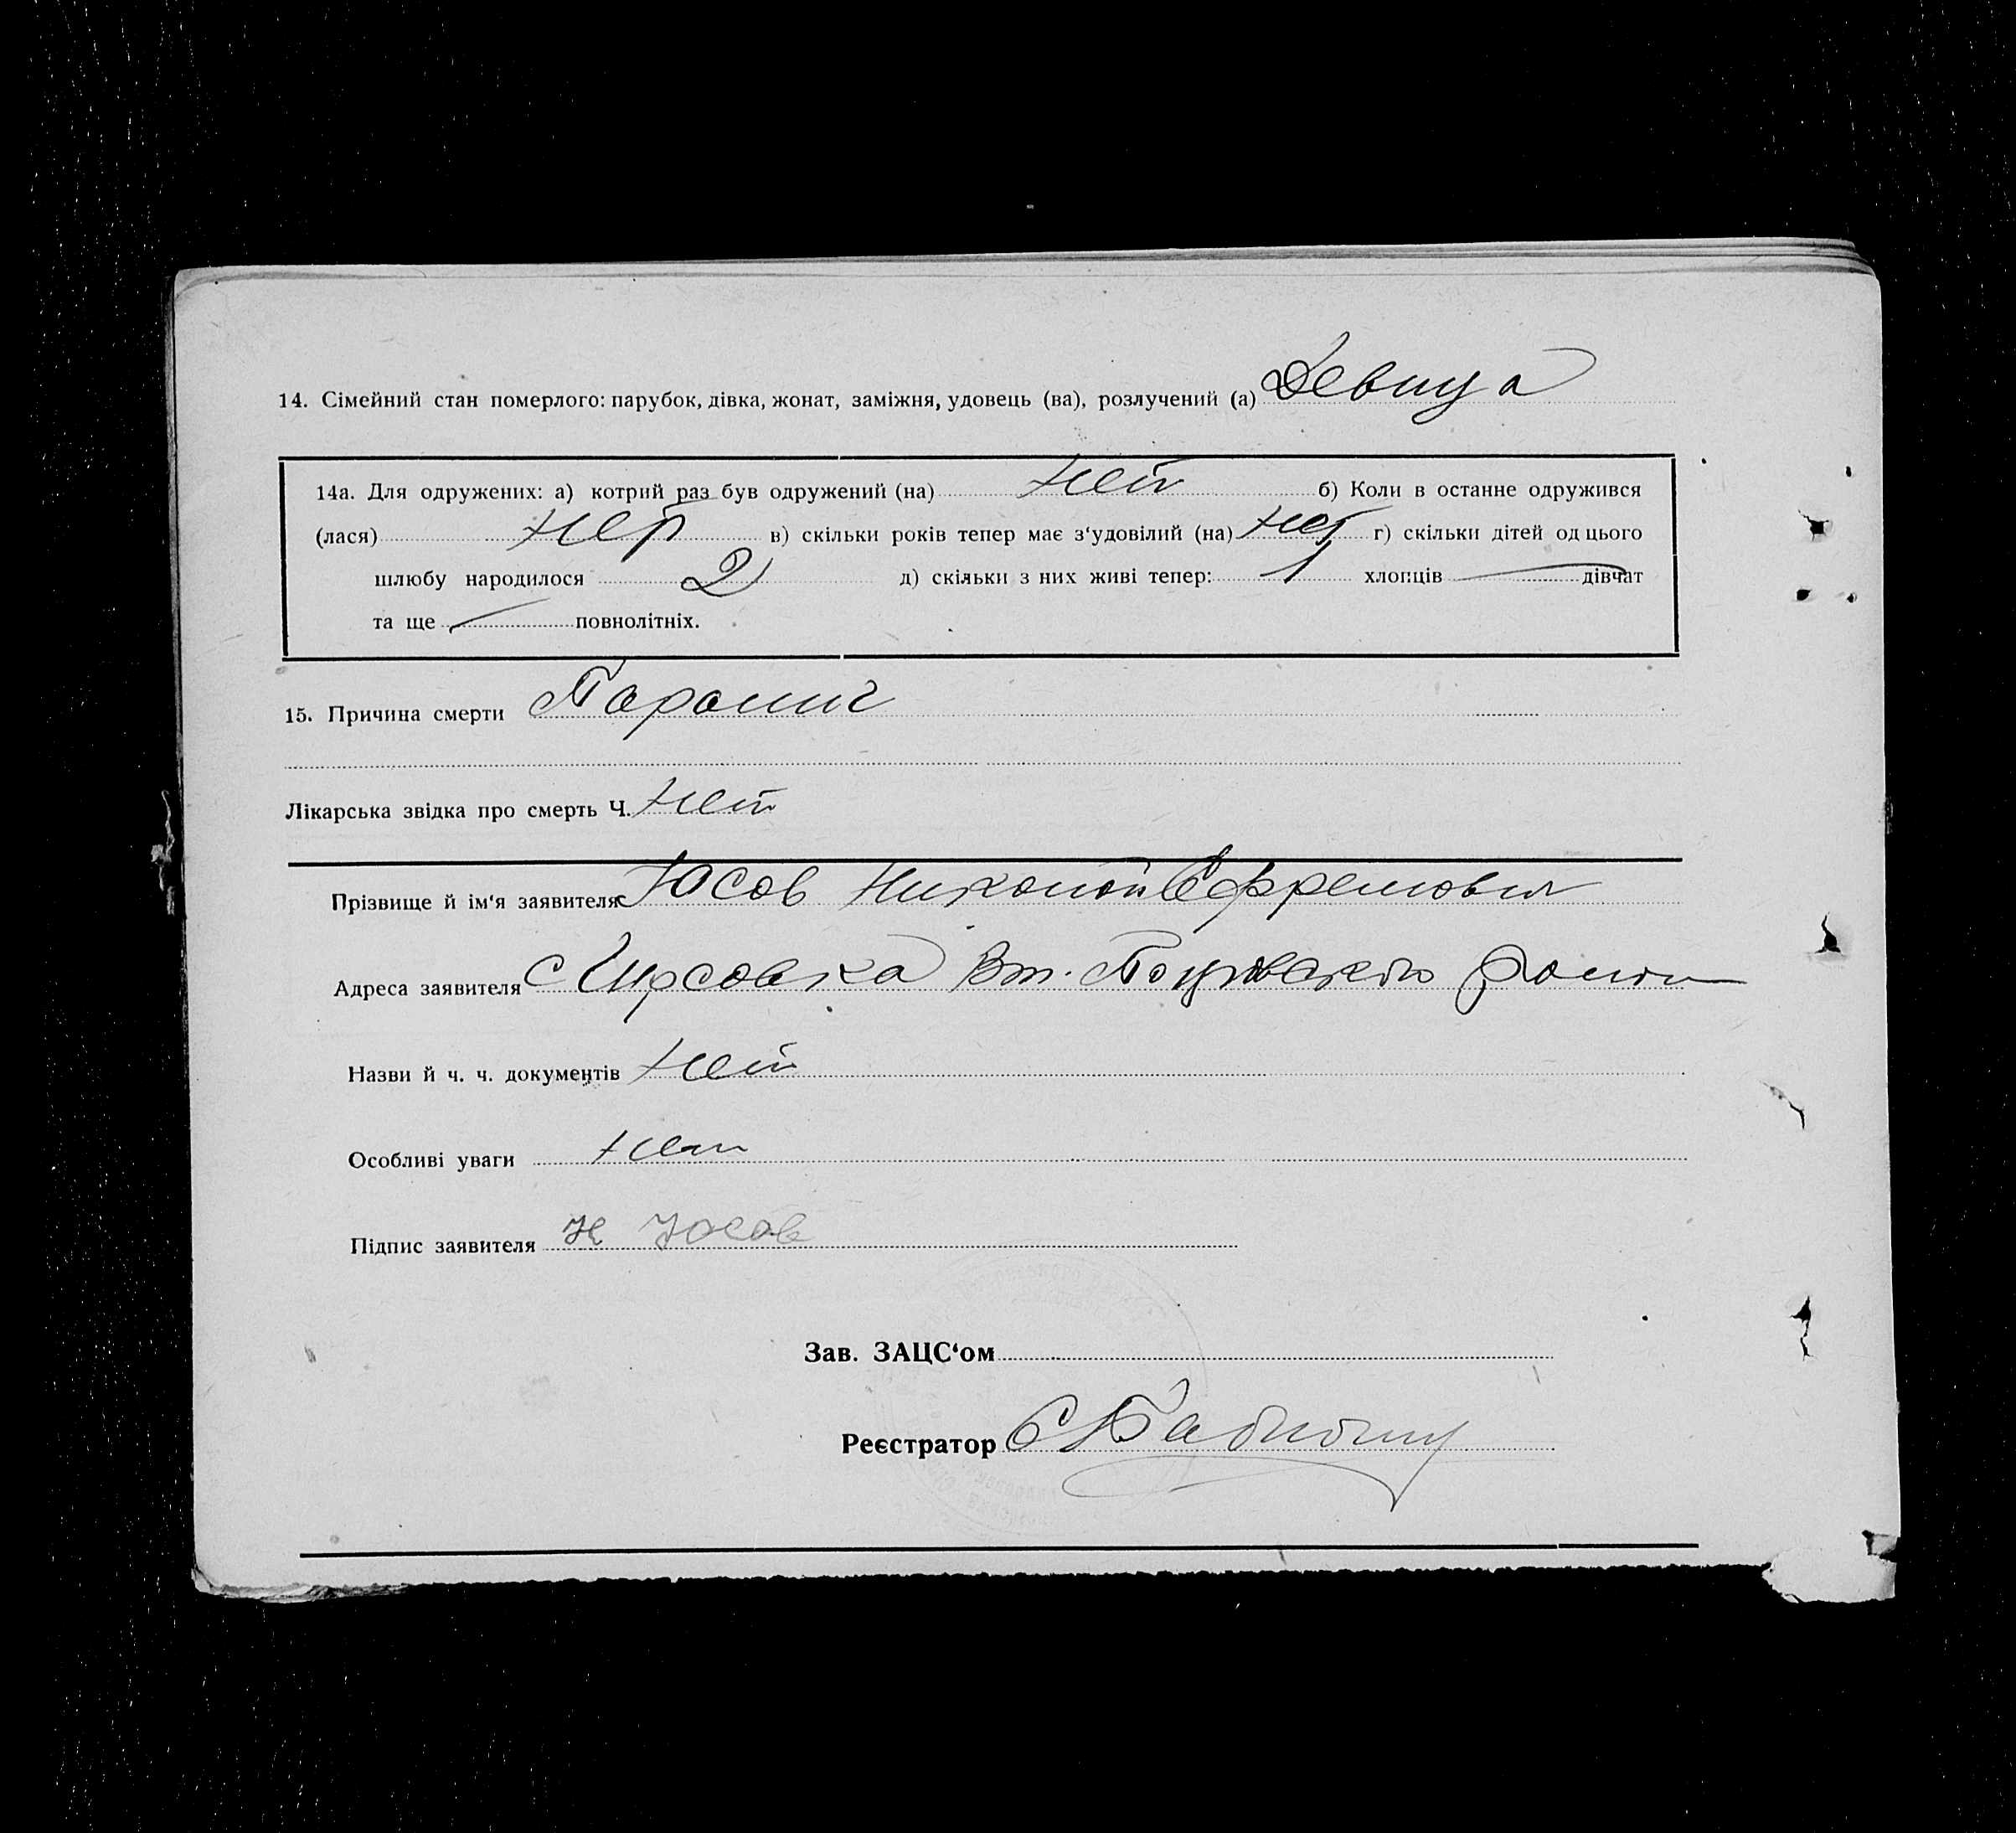 14. Сімейний стан померлого: парубок, дівка, жонат, заміжня, удовець (ва), розлучений (а) Девица
14а. Для одружених: а) котрий раз був одружений (на) нет б) Коли в останне одружився
(лася) нет в) скільки років тепер має з‘удовілий (на) нет г) скільки дітей од цього
шлюбу народилося 2 д) скільки з них живі тепер: 1 хлопців — дівчат
та ще — повнолітніх.
15. Причина смерти Паралич
Лікарська звідка про смерть Ч. нет
Прізвище й ім‘я заявителя Юсов Николай Ефремович
Адреса заявителя с Гирсовка Району
Назви й ч. ч. документів нет
Особливі уваги нет
Підпис заявителя Н Юсов
Зав. ЗАЦС‘ом
Реєстратор